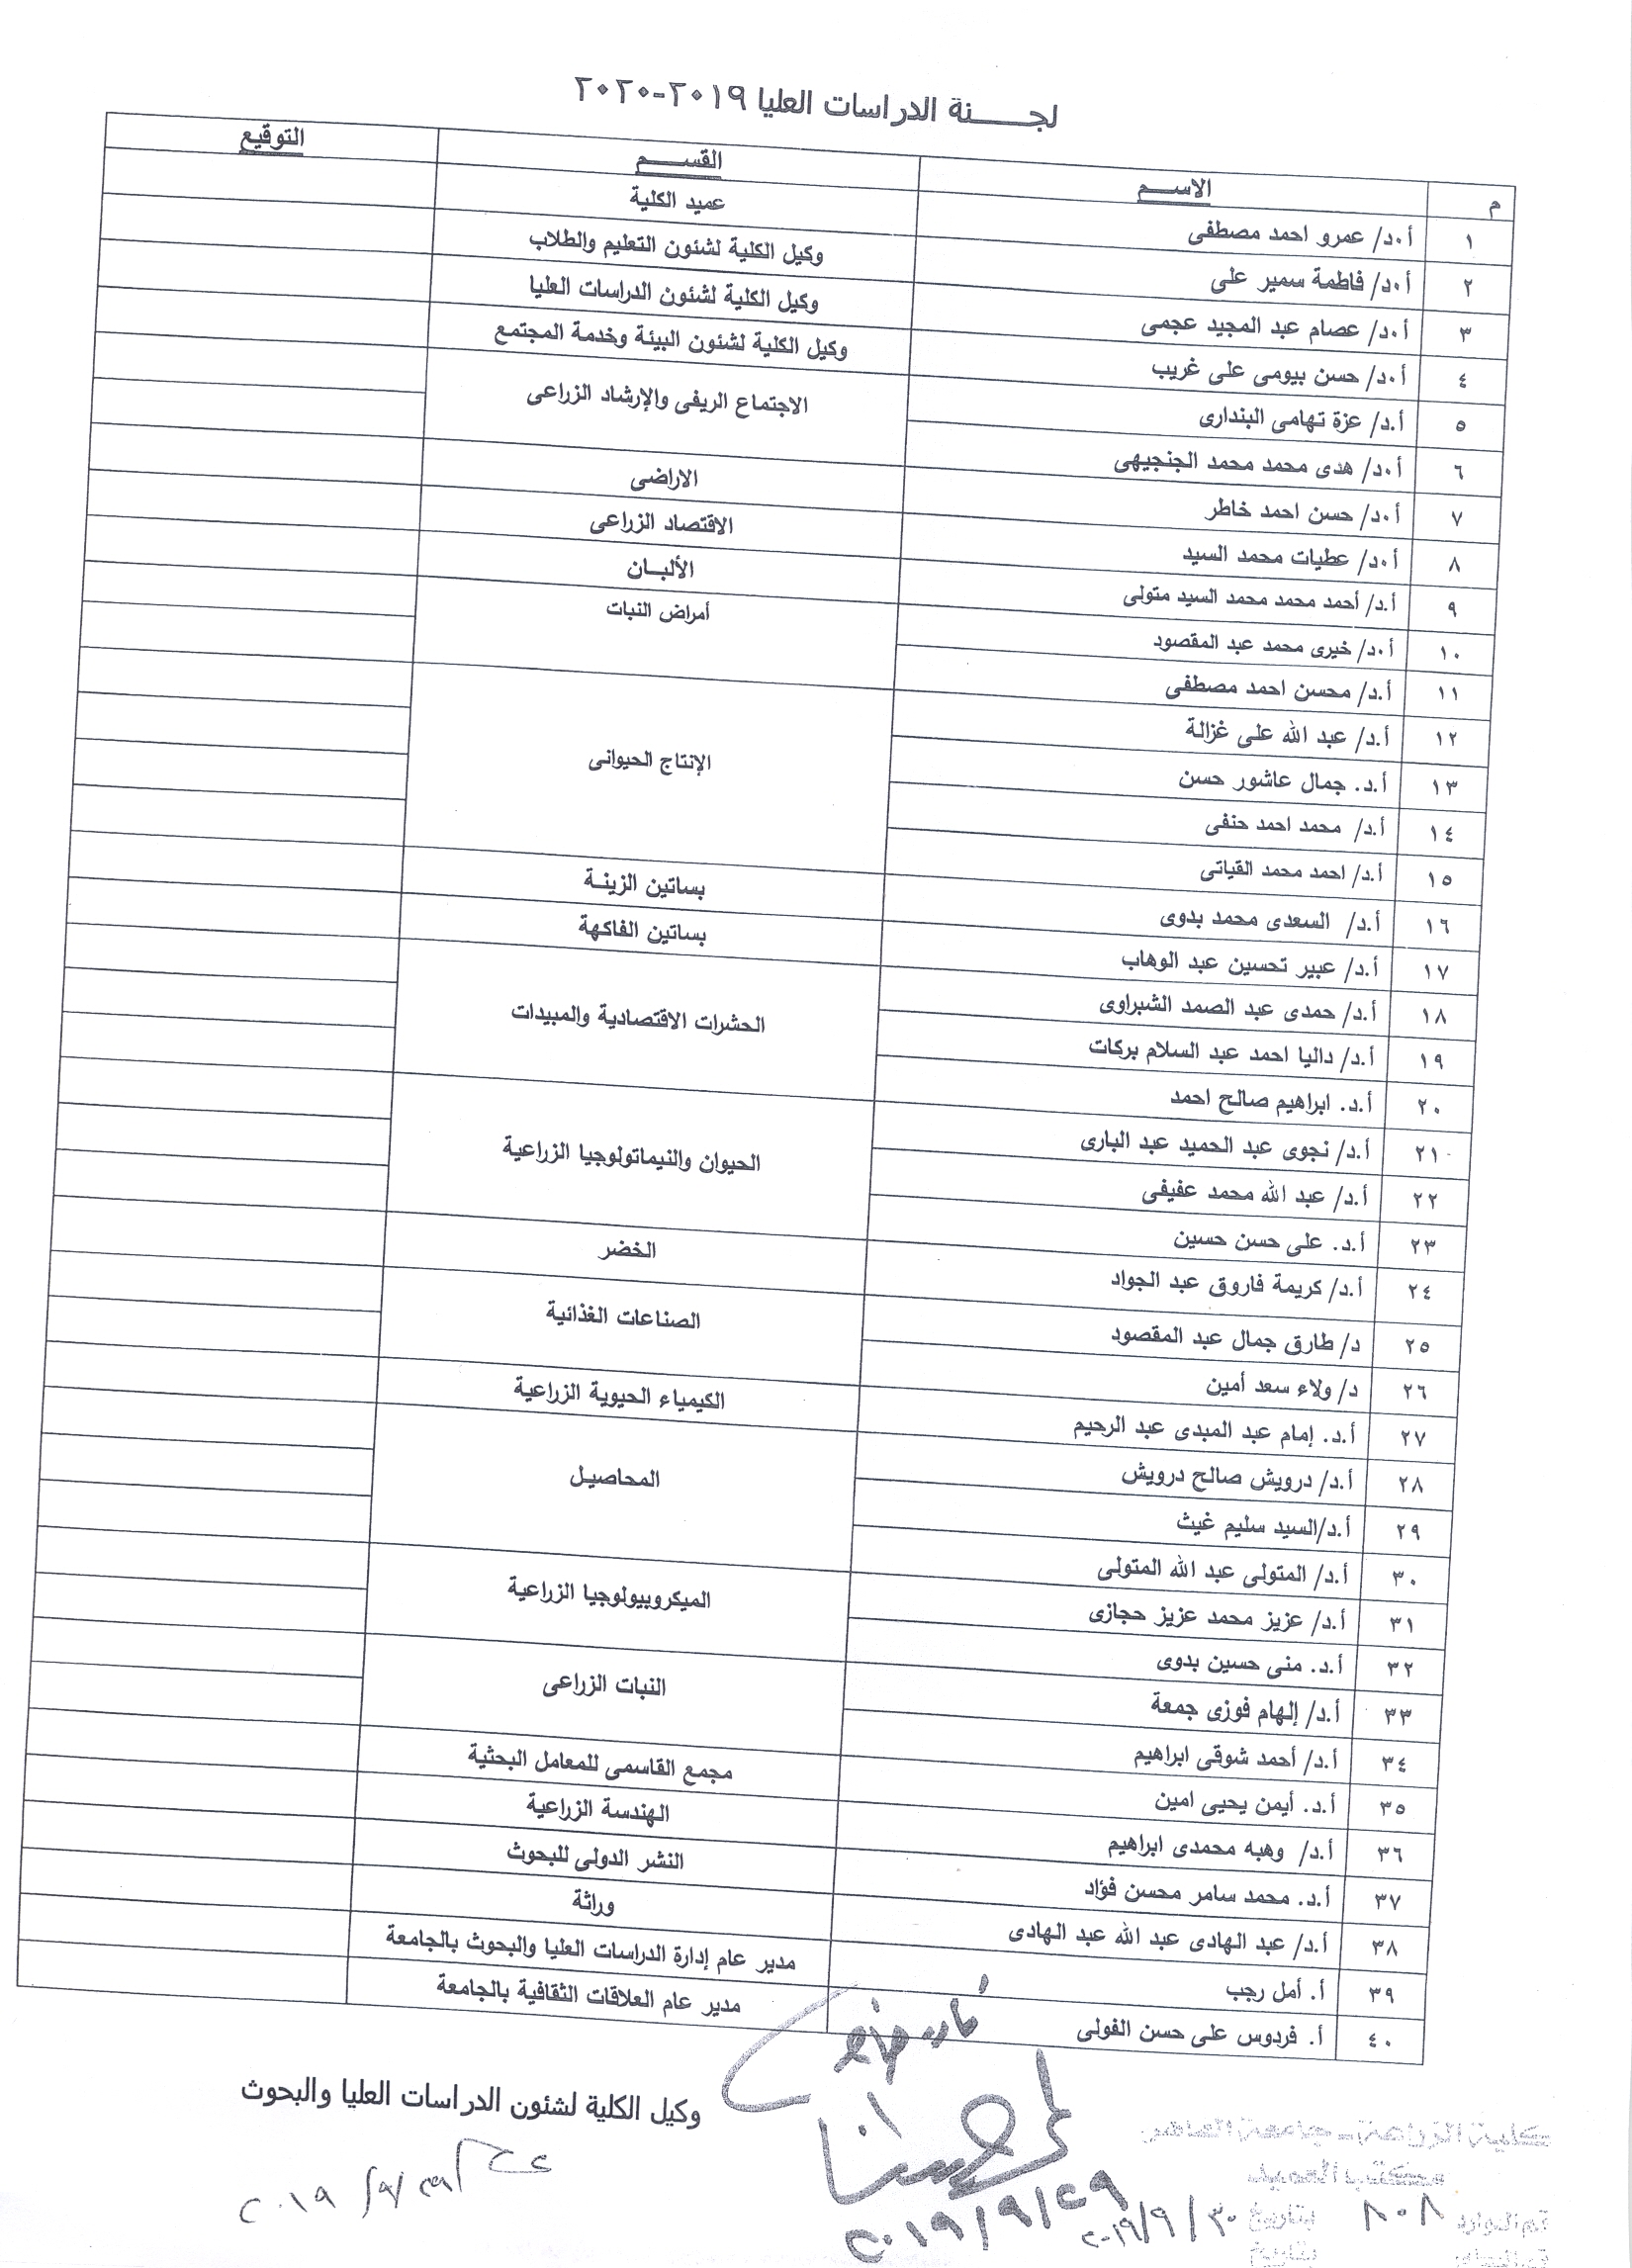 لجـــــنة الدراسات العليا ٢٠١٩-٢٠٢٠
م الاســـم القســـــم التوقيع
١ أ.د/ عمرو احمد مصطفى عميد الكلية
٢ أ.د/ فاطمة سمير على وكيل الكلية لشئون التعليم والطلاب
٣ أ.د/ عصام عبد المجيد عجمى وكيل الكلية لشئون الدراسات العليا
٤ أ.د/ حسن بيومى على غريب وكيل الكلية لشئون البيئة وخدمة المجتمع
٥ أ.د/ عزة تهامى البندارى الاجتماع الريفى والإرشاد الزراعى
٦ أ.د/ هدى محمد محمد الجنجيهى
٧ أ.د/ حسن احمد خاطر الاراضى
٨ أ.د/ عطيات محمد السيد الاقتصاد الزراعى
٩ أ.د/ أحمد محمد محمد السيد متولى الألبــان
١٠ أ.د/ خيرى محمد عبد المقصود أمراض النبات
١١ أ.د/ محسن احمد مصطفى
١٢ أ.د/ عبد الله على غزالة الإنتاج الحيوانى
١٣ أ.د. جمال عاشور حسن
١٤ أ.د/ محمد احمد حنفى
١٥ أ.د/ احمد محمد القياتى
١٦ أ.د/ السعدى محمد بدوى بساتين الزينـة
١٧ أ.د/ عبير تحسين عبد الوهاب بساتين الفاكهة
١٨ أ.د/ حمدى عبد الصمد الشبراوى الحشرات الاقتصادية والمبيدات
١٩ أ.د/ داليا احمد عبد السلام بركات
٢٠ أ.د. ابراهيم صالح احمد
٢١ أ.د/ نجوى عبد الحميد عبد البارى الحيوان والنيماتولوجيا الزراعية
٢٢ أ.د/ عبد الله محمد عفيفى
٢٣ أ.د. على حسن حسين
٢٤ أ.د/ كريمة فاروق عبد الجواد الخضر
٢٥ د/ طارق جمال عبد المقصود الصناعات الغذائية
٢٦ د/ ولاء سعد أمين
٢٧ أ.د. إمام عبد المبدى عبد الرحيم الكيمياء الحيوية الزراعية
٢٨ أ.د/ درويش صالح درويش المحاصيـل
٢٩ أ.د/السيد سليم غيث
٣٠ أ.د/ المتولى عبد الله المتولى
٣١ أ.د/ عزيز محمد عزيز حجازى الميكروبيولوجيا الزراعية
٣٢ أ.د. منى حسين بدوى
٣٣ أ.د/ إلهام فوزى جمعة النبات الزراعى
٣٤ أ.د/ أحمد شوقى ابراهيم
٣٥ أ.د. أيمن يحيى امين مجمع القاسمى للمعامل البحثية
٣٦ أ.د/ وهبه محمدى ابراهيم الهندسة الزراعية
٣٧ أ.د. محمد سامر محسن فؤاد النشر الدولى للبحوث
٣٨ أ.د/ عبد الهادى عبد الله عبد الهادى وراثة
٣٩ أ. أمل رجب مدير عام إدارة الدراسات العليا والبحوث بالجامعة
٤٠ أ. فردوس على حسن الفولى مدير عام العلاقات الثقافية بالجامعة
وكيل الكلية لشئون الدراسات العليا والبحوث
٢٠١٩/٩/٢٩
٢٠١٩/٩/٢٩
٢٠١٩/٩/٣٠
٨٠٨